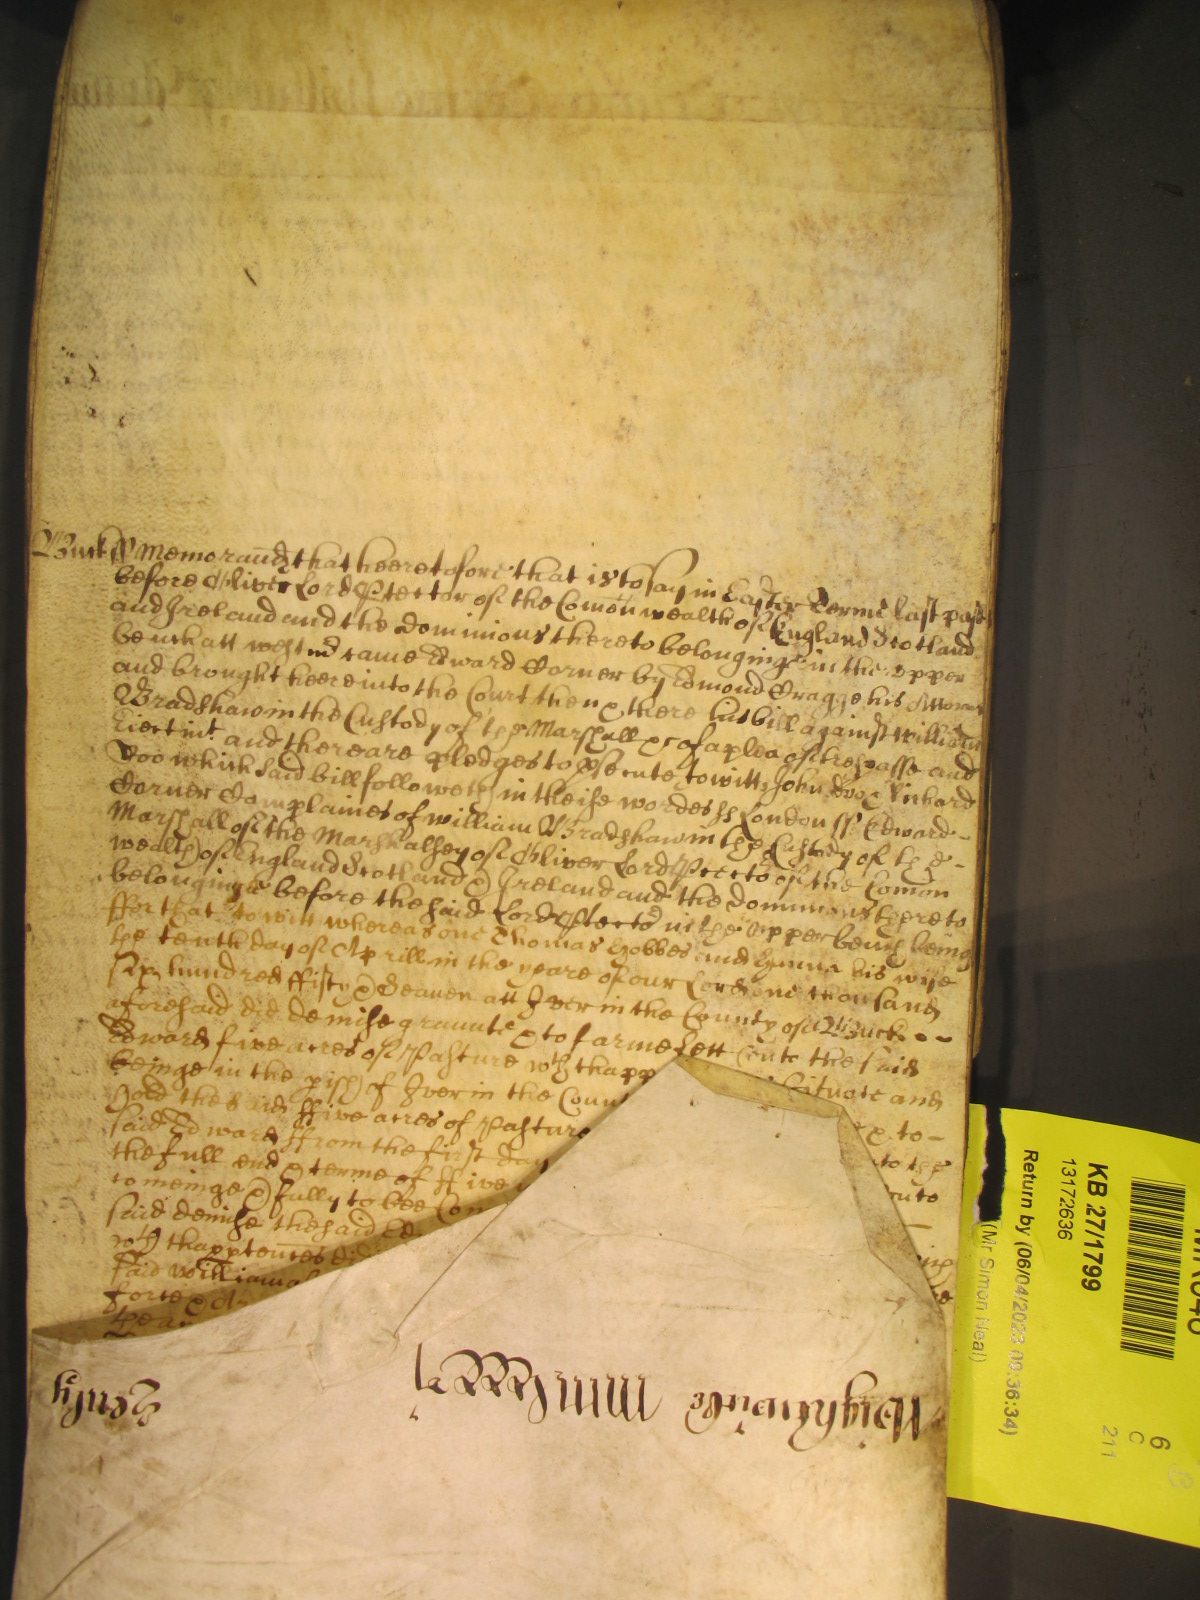 Buck ss Memorand that heeretofore that is to say in Easter Terme last past
before Oliver Lord Ptector of the Comon wealth of England Scotland
and Ireland and the dominions thereto belonginge in the upper
bench att westm came Edward Corner by Edmond Cragge his Attorney
and brought heere into the Court then & there his bill against William
Bradshaw in the Custody of the Marshall &c of a plea of trespasse and
Eiectmt and there are pledges to psecute to witt John Doo & Richard
Roo which said bill followeth in theise wordes ss London ss Edward
Corner Complaines of william Bradshaw in the Custody of the
Marshall of the Marshalsey of Oliver Lord Ptector of the Comon
wealth of England Scotland & Ireland and the dominions thereto
belonginge before the said Lord Ptector in the upper bench being
ffor that to witt whereas one Thomas Hobbes and his wife
the tenth day of Aprill in the yeare of our Lord one thousand
six hundred ffifty & Seaven att Iver in the County of Buck
aforesaid did demise graunte & to farme lett unto the said
Edward five acres of Pasture wth thapp Situate and
beinge in the pish of Iver in the Coun
hold the said ffive acres of Pasture to
said Edward ffrom the first day to the
the full end & terme of ffive
to meinge & fully to bee Com
said demise the said Ed
wth thapptences did
said William
force & Ar
the a
KB 27/1799
13172636
Return by (06/04/2023 09:36:34)
(Mr Simon Neal)
6
C
211